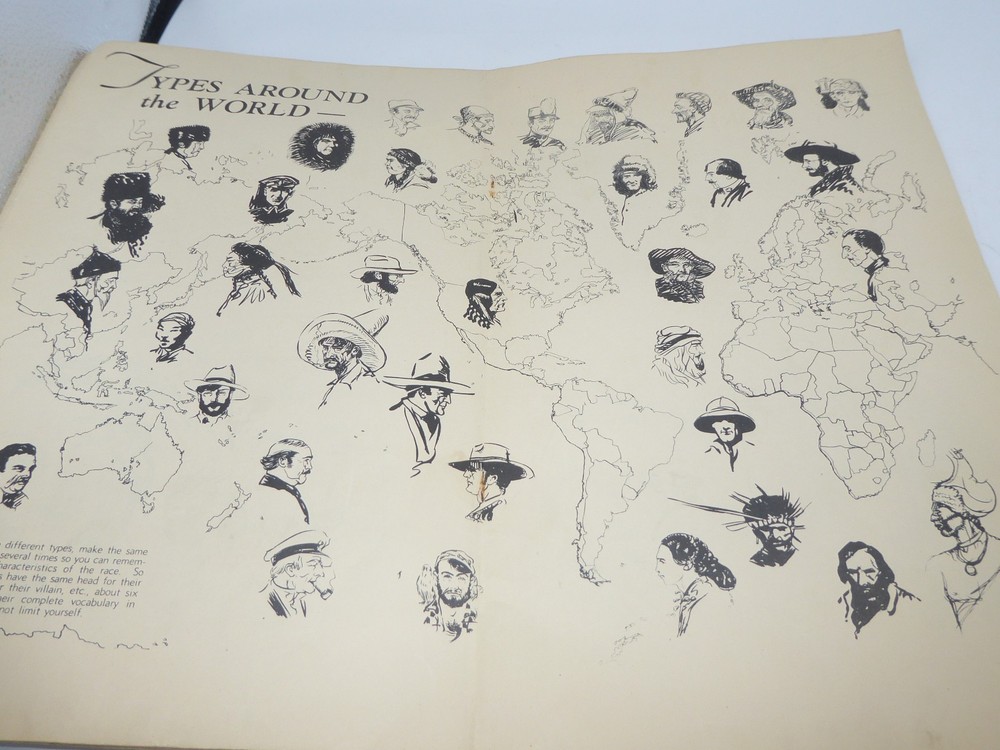 TYPES AROUND
the WORLD —
different types, make the same
several times so you can remem-
haracteristics of the race. So
have the same head for their
their villain, etc., about six
heir complete vocabulary in
not limit yourself.